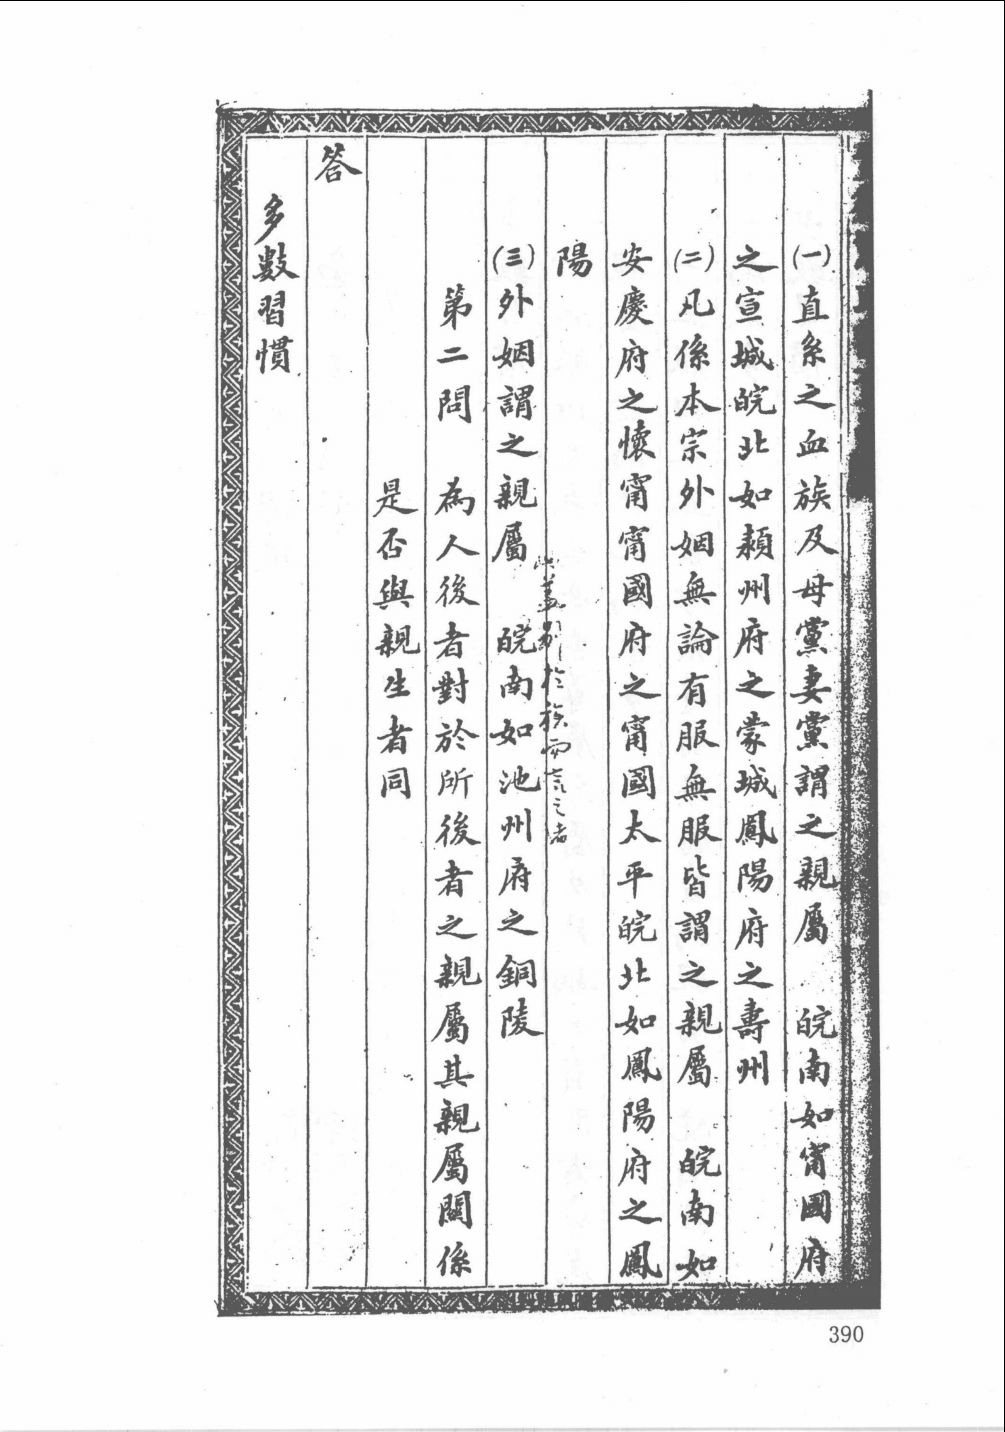 (一)直系之血族及母黨妻黨謂之親屬　皖南如甯國府
之宣城皖北如潁州府之蒙城鳳陽府之壽州
(二)凡係本宗外姻無論有服無服皆謂之親屬　皖南如
安慶府之懷甯甯國府之甯國太平皖北如鳳陽府之鳳
陽
(三)外姻謂之親屬　皖南如池州府之銅陵
此蓋別於族而言之者
第二問　為人後者對於所後者之親屬其親屬關係
是否與親生者同
答
多數習慣
390